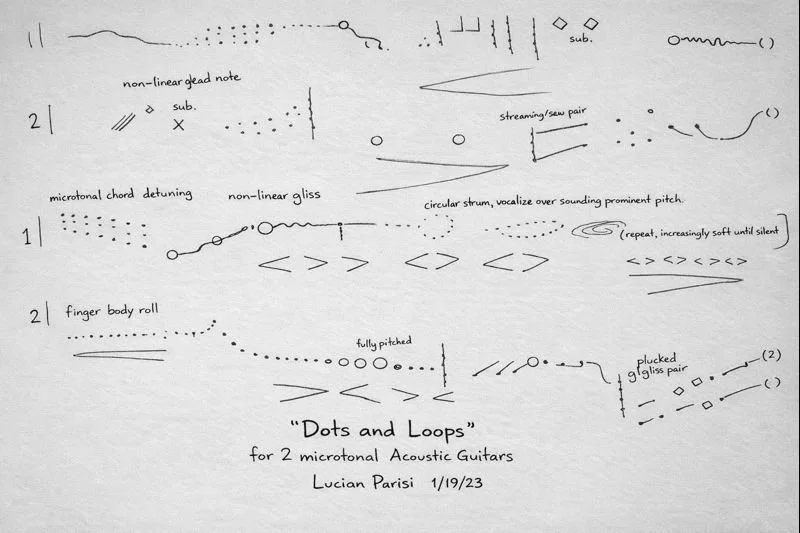 1|
sub.
( )
non-linear glead note
2|
sub.
streaming/sew pair
( )
microtonal chord detuning
non-linear gliss
circular strum, vocalize over sounding prominent pitch.
1|
(repeat, increasingly soft until silent
2|
finger body roll
fully pitched
plucked
g'gliss pair
(2)
( )
"Dots and Loops"
for 2 microtonal Acoustic Guitars
Lucian Parisi 1/19/23